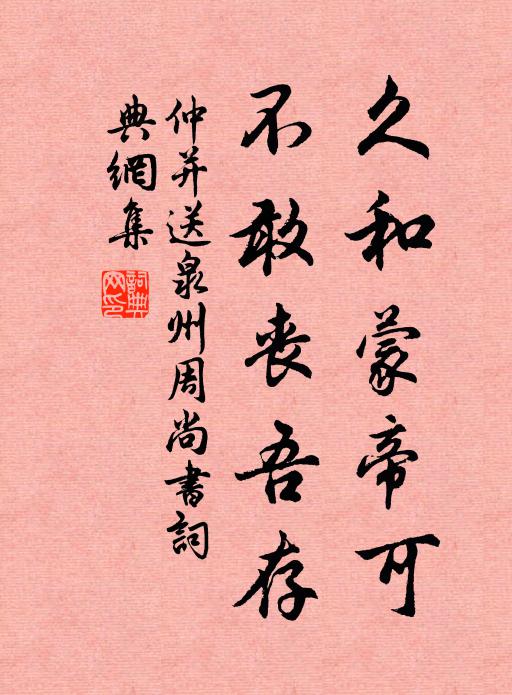 久和蒙帝可
不敢丧吾存
仲并送泉州周尚書詞
典網集
詞典
网印